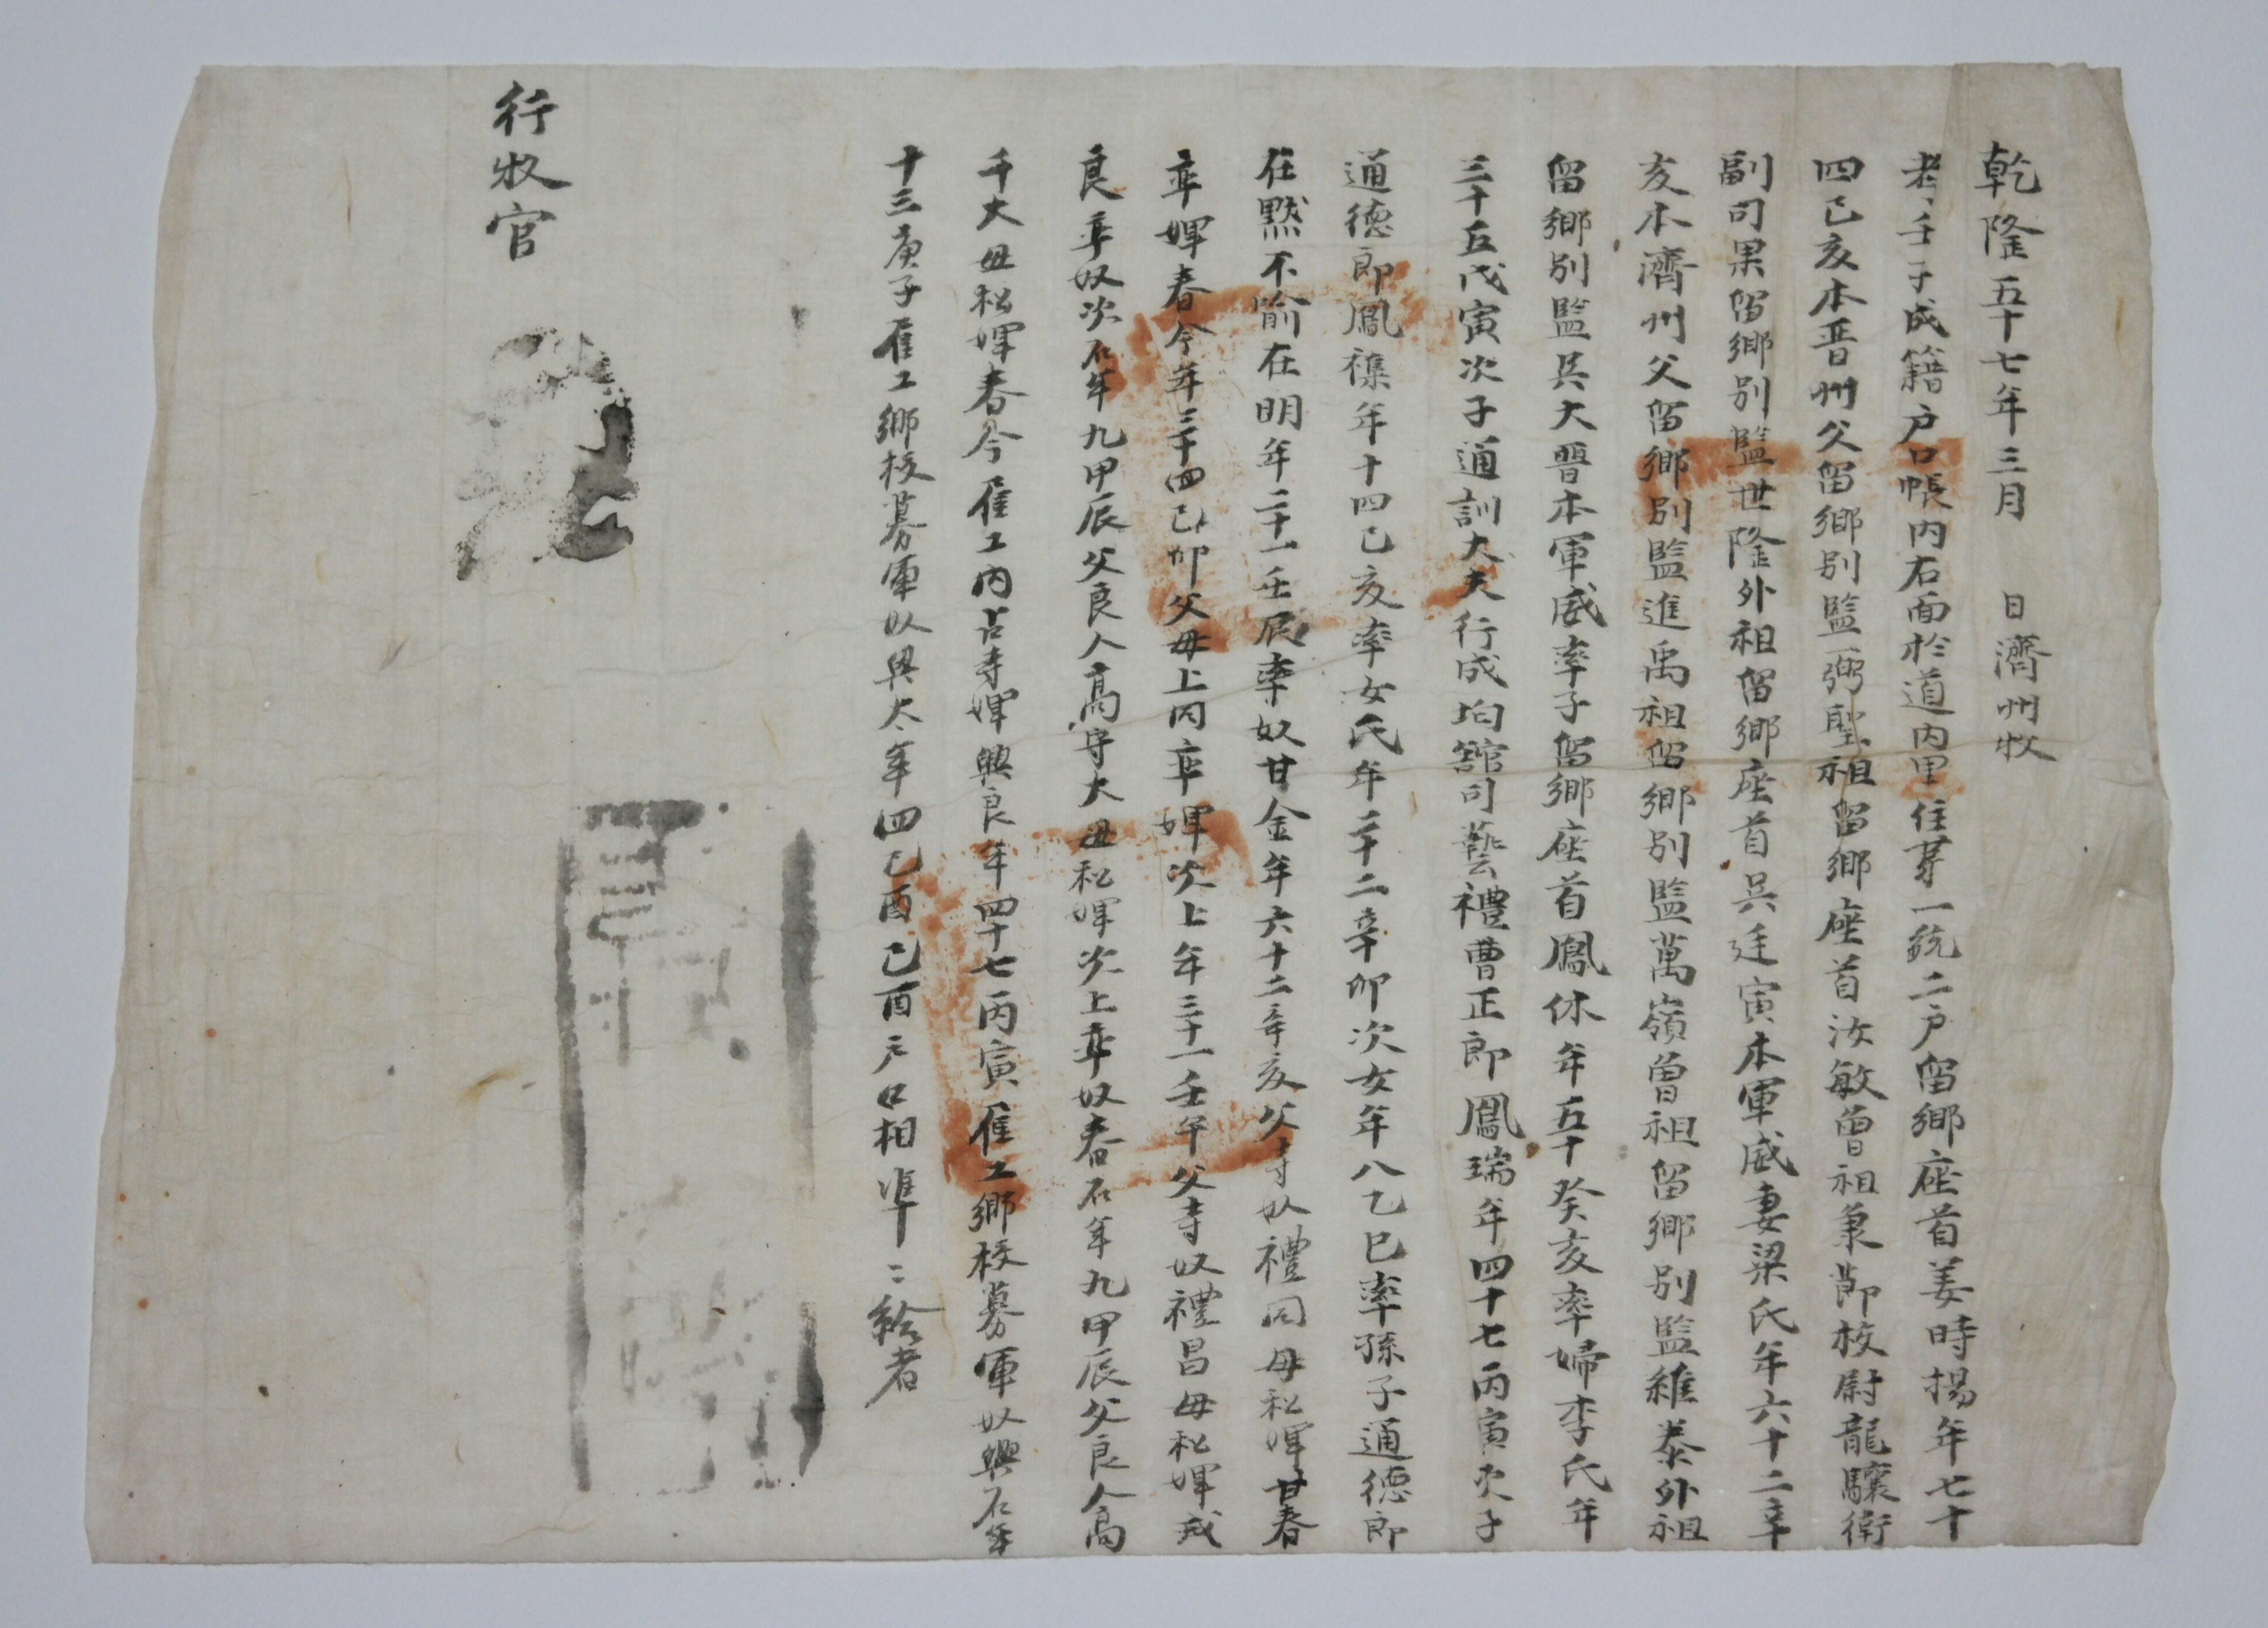 乾隆五十七年三月 日濟州牧
考壬子成籍戶口帳內右面於道內里住第一統二戶留鄉座首姜時揚年七十
四己亥本晋州父留鄉別監弼聖祖留鄉座首汝敏曾祖秉節校尉龍驤衛
副司果留鄉別監世隆外祖留鄉座首吳廷寅本軍威妻梁氏年六十二辛
亥本濟州父留鄉別監進禹祖留鄉別監萬嶺曾祖留鄉別監維泰外祖
留鄉別監吳大晋本軍威率子留鄉座首鳳休年五十癸亥率婦李氏年
三十五戊寅次子通訓大夫行成均館司藝禮曹正郎鳳瑞年四十七丙寅次子
通德郎鳳禥年十四己亥率女氏年二十二辛卯次女年八乙巳率孫子通德郎
在黙不喻在明年二十一壬辰率奴甘金年六十二辛亥父寺奴禮同母私婢甘春
率婢春今年三十四己卯父母上同率婢次上年三十一壬午父寺奴禮昌母私婢戒
良率奴次石年九甲辰父良人高守大母私婢次上率奴春石年九甲辰父良人高
千大母私婢春今雇工內占寺婢興良年四十七丙寅雇工鄉校募軍奴興石年
十三庚子雇工鄉校募軍奴興太年四己酉己酉戶口相準二給者
行牧官